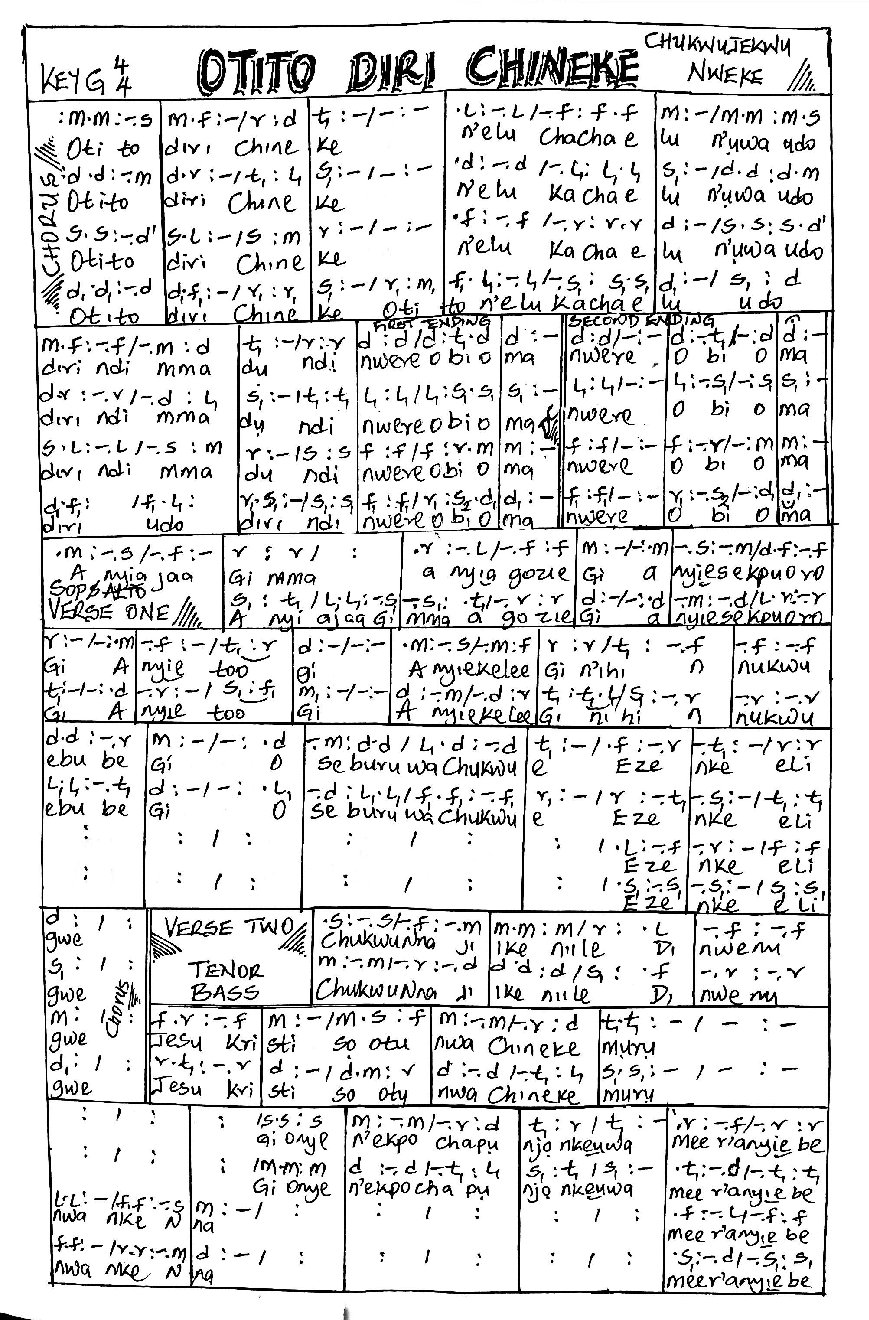 KEY G 4/4 OTITO DIRI CHINEKE CHUKWUJEKWU NWEKE
CHORUS
:m.m:-.s | m.f:-/r:d | t₁:-/-:- | .L:-.L/-.f:f.f | m:-/m.m:m.s
Oti to | diri Chine | ke | n'elu Chacha e | lu n'uwa udo
.d.d:-.m | d.r:-/t₁:L₁ | s₁:-/-:- | .d:-.d/-.L₁:L₁.L₁ | s₁:-/d.d:d.m
Otito | diri Chine | ke | n'elu Kachae | lu n'uwa udo
s.s:-.d' | s.L:-/s:m | r:-/-:- | .f:-.f/-.r:r.r | d:-/s.s:s.d'
Otito | diri Chine | ke | n'elu Kachae | lu n'uwa udo
d₁.d₁:-.d | d₁f₁:-/r₁:r₁ | s₁:-/r₁:m₁ | f₁.L₁:-.L₁/-.s₁:s₁.s₁ | d₁:-/s₁:d
Otito | diri Chine | ke Oti | to n'elu Kachae | lu udo
FIRST ENDING | SECOND ENDING
m.f:-.f/-.m:d | t₁:-/r:r | d:d/d:t₁.d | d:- | d:d/-:- | d:-.t₁/-:d | d:-
diri ndi mma | du ndi | nwere obi o | ma | nwere | o bi o | ma
d.r:-.r/-.d:L₁ | s₁:-/t₁:t₁ | L₁:L₁/L₁:s₁.s₁ | s₁:- | L₁:L₁/-:- | L₁:-.s₁/-:s₁ | s₁:-
diri ndi mma | du ndi | nwere obi o | ma | nwere | o bi o | ma
s.L:-.L/-.s:m | r:-/s:s | f:f/f:r.m | m:- | f:f/-:- | f:-.r/-:m | m:-
diri ndi mma | du ndi | nwere obi o | ma | nwere | o bi o | ma
d₁.f₁: /f₁.L₁: | r₁.s₁:-/s₁:s | f₁:f₁/r₁:s₂.d₁ | d₁:- | f₁:f₁/-:- | r₁:-.s₂/-:d | d₁:-
diri udo | diri ndi | nwere obi o | ma | nwere | o bi o | ma
.m:-.s/-.f:- | r:r/ : | .r:-.L/-.f:f | m:-/-:.m | -.s:-.m/d.f:-.f
A nyia jaa | Gi mma | a nyia gozie | Gi a | nyiesekpuoro
SOP & ALTO
VERSE ONE | s₁:t₁/L₁.L₁:-.s₁ | -.s₁:.t₁/-.r:r | d:-/-:.d | -.m:-.d/L.r:-.r
A nyi ajaa Gi | mma a gozie | Gi a | nyiesekpuoro
r:-/-:.m | -.f:-/t₁:r | d:-/-:- | .m:-.s/-.m:f | r:r/t₁:-.f | -.f:-.f
Gi A | nyie too | gi | A nyiekelee | Gi n'ihi n | nukwu
t₁:-/-:.d | -.r:-/s₁:f₁ | m₁:-/-:- | d:-.m/-.d:r | t₁:t₁.L₁/s₁:-.r | -.r:-.r
Gi A | nyie too | Gi | A nyiekelee | Gi n'ihi n | nukwu
d.d:-.r | m:-/-:.d | -.m:d.d/L₁.d:-.d | t₁:-/.f:-.r | -.t₁:-/r:r
ebu be | Gi O | se buru wa Chukwu | e Eze | nke eLi
L₁.L₁:-.t₁ | d:-/-:.L₁ | -.d:L₁.L₁/f₁.f₁:-.f₁ | r₁:-/r:-.t₁ | -.s₁:-/t₁:t₁
ebu be | Gi O | se buru wa Chukwu | e Eze | nke eLi
: | : / : | : / : | : /.L:-.f | -.r:-/f:f
Eze | nke eLi
: | : / : | : / : | : /.s₁:-.s₁ | -.s₁:-/s₁:s₁
Eze | nke eLi
d: / : | VERSE TWO | .s:-.s/-.f:-.m | m.m:m/r:.L | -.f:-.f
gwe | ChukwuNna Ji | Ike niile Di | nwenu
s₁: / : | TENOR | m:-.m/-.r:-.d | d.d:d/s₁:.f | -.r:-.r
gwe | BASS | ChukwuNna Ji | Ike niile Di | nwe nu
Chorus
m: / : | f.r:-.f | m:-/m.s:f | m:-.m/-.r:d | t₁.t₁:-/-:-
gwe | Jesu Kri | sti so otu | nwa Chineke | muru
d₁: / : | r.t₁:-.r | d:-/d.m:r | d:-.d/-.t₁:L₁ | s₁.s₁:-/-:-
gwe | Jesu Kri | sti so otu | nwa Chineke | muru
: / : | : /s.s:s | m:-.m/-.r:d | t₁:r/t₁:- | .r:-.f/-.r:r
Gi Onye | n'ekpo chapu | njo nkeuwa | mee r'anyie be
: / : | : /m.m:m | d:-.d/-.t₁:L₁ | s₁:t₁/s₁:- | .t₁:-.d/-.t₁:t₁
Gi Onye | n'ekpo cha pu | njo nkeuwa | mee r'anyie be
L.L:-/f.f:-.s | m:-/ : | : / : | : / : | .f:-.L/-.f:f
nwa nke N | na | mee r'anyie be
f.f:-/r.r:-.m | d:-/ : | : / : | : / : | .s₁:-.d/-.s₁:s₁
nwa nke N | na | mee r'anyie be